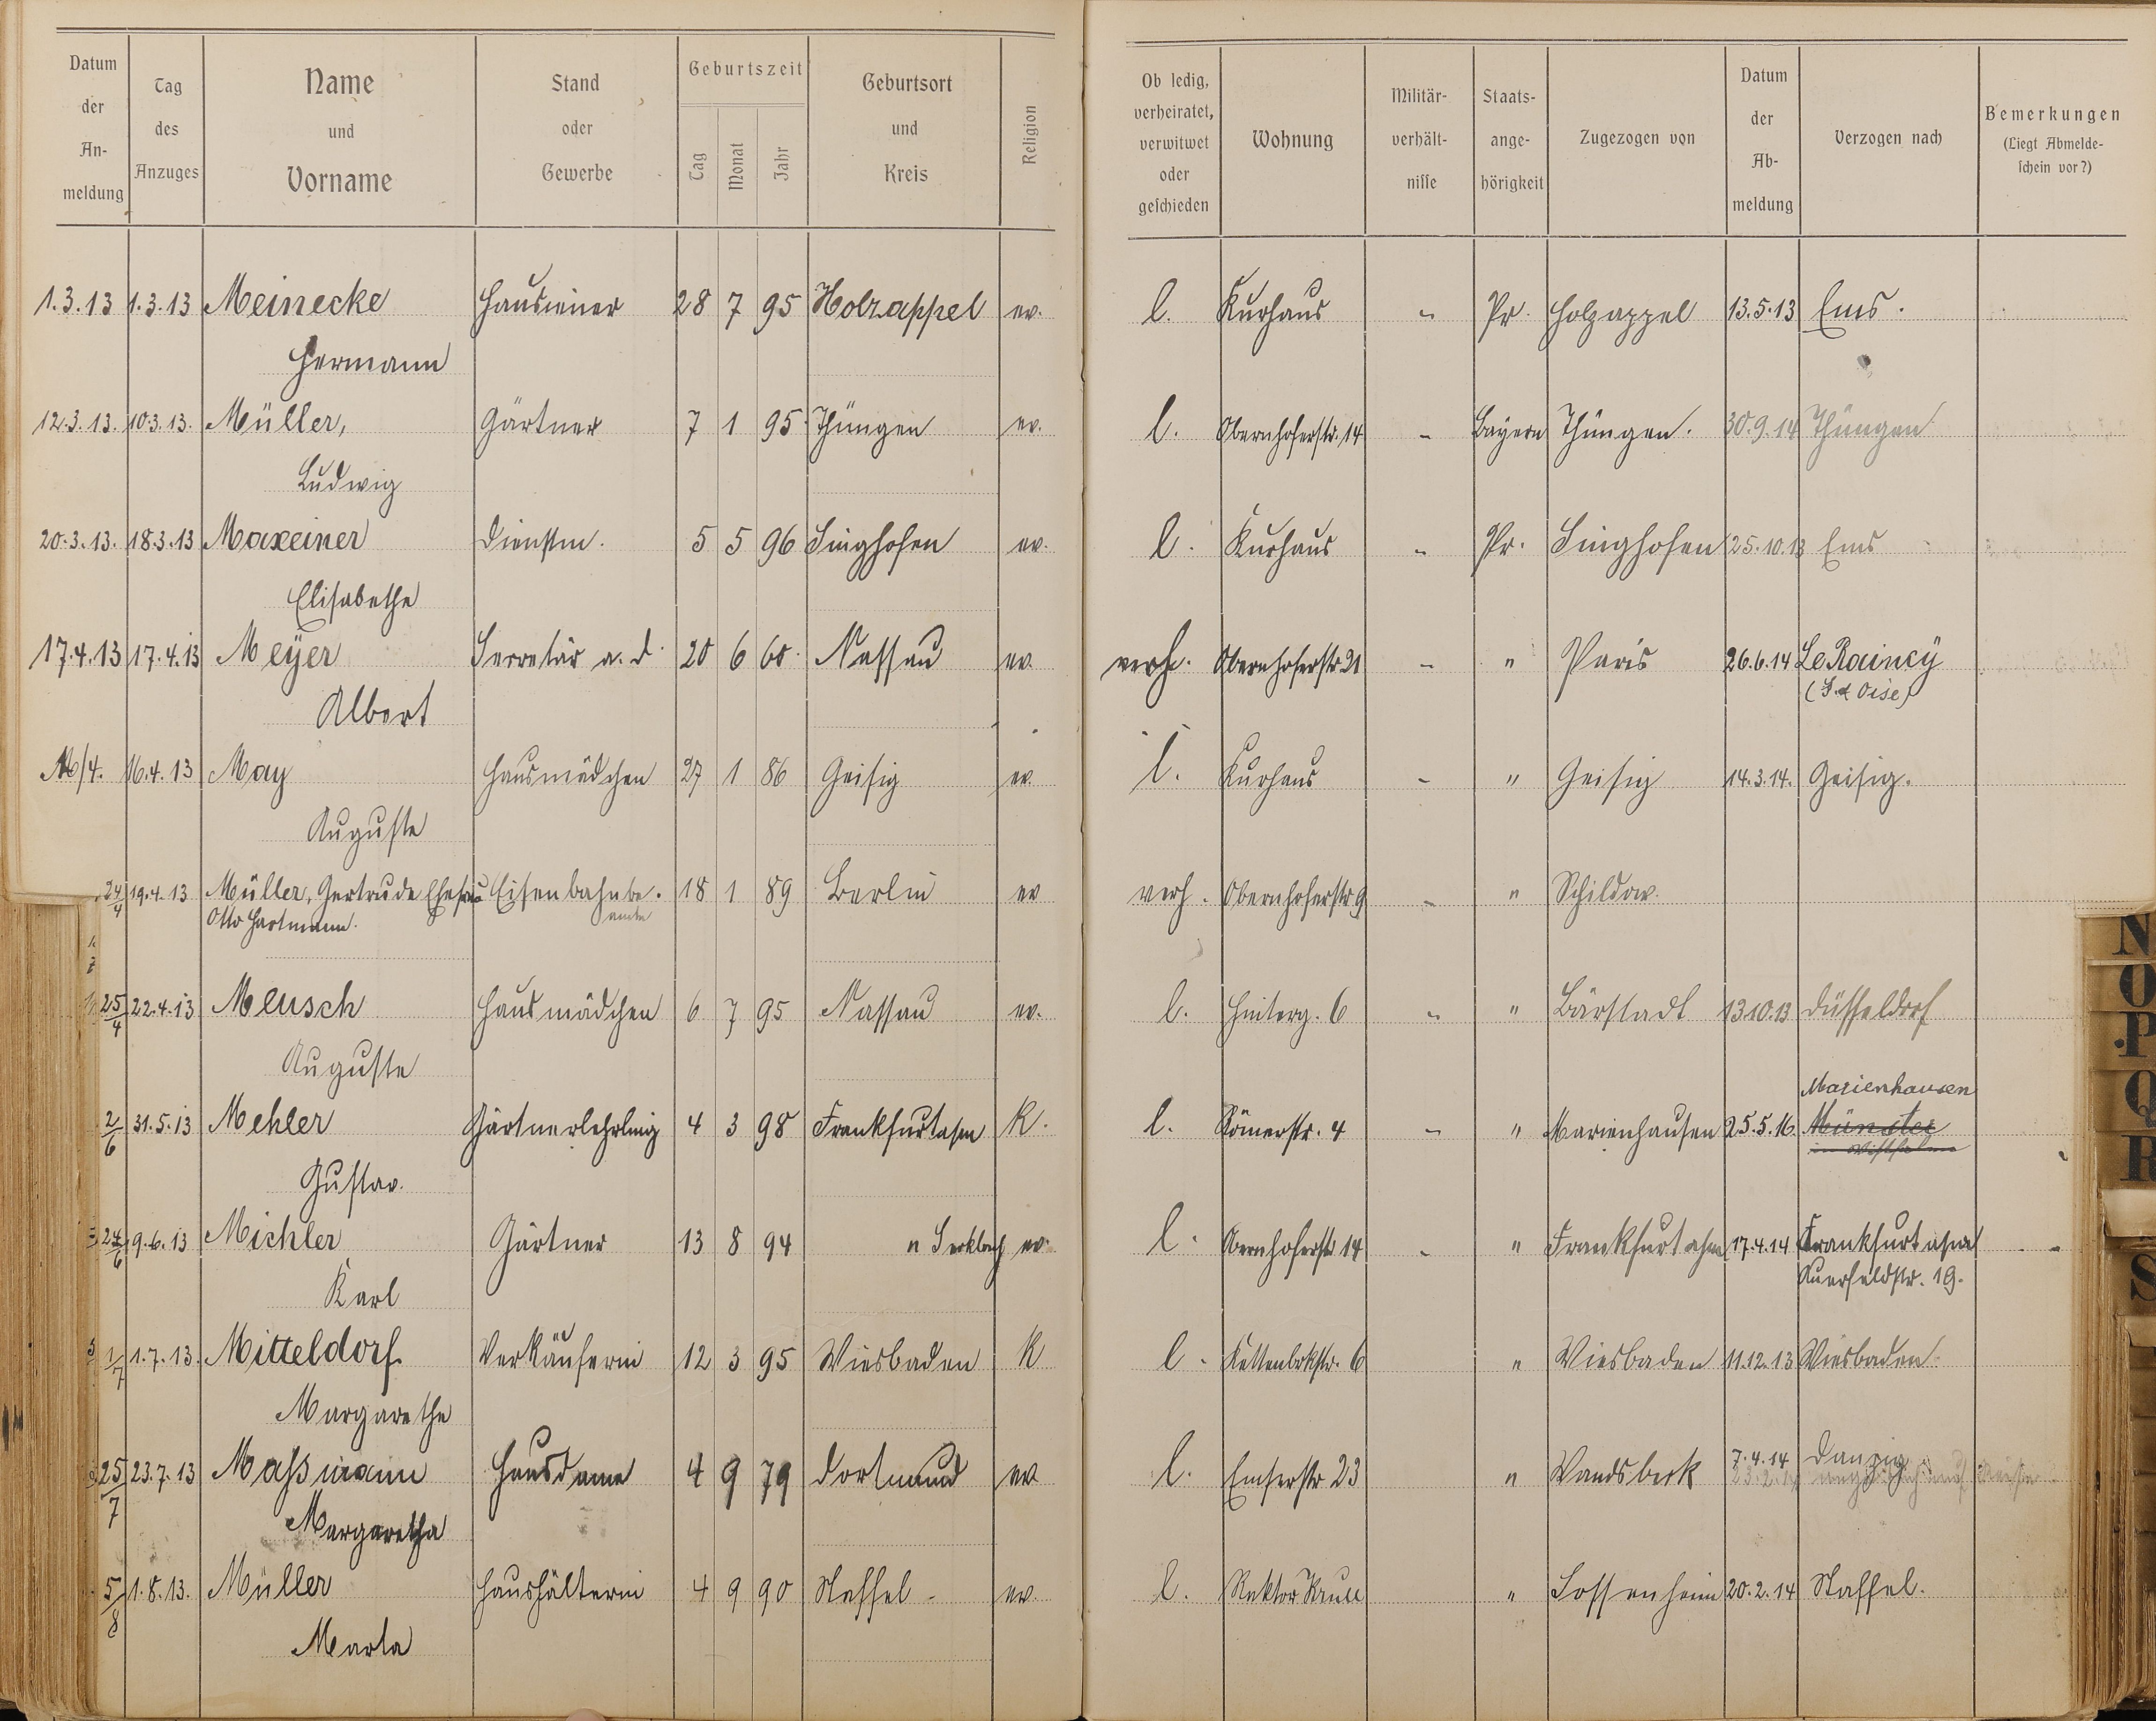 Datum der An- meldung | Tag des Anzuges | Name und Vorname | Stand oder Gewerbe | Geburtszeit Tag Monat Jahr | Geburtsort und Kreis | Religion | Ob ledig, verheiratet, verwitwet oder geschieden | Wohnung | Militär- verhält- nisse | Staats- ange- hörigkeit | Zugezogen von | Datum der Ab- meldung | Verzogen nach | Bemerkungen (Liegt Abmelde- schein vor?)
1.3.13 1.3.13 Meinecke 28 7 95 Holzappel ev. l. Kurhaus " Pr. Holzappel 13.5.13 Ems.
Hermann
12.3.13. 10.3.13. Müller, Gärtner 7 1 95 Thüngen ev. l. Obernhoferstr. 14 - Bayern Thüngen. 30.9.14 Thüngen
Ludwig
20.3.13. 18.3.13 Maxeiner Dienstm. 5 5 96 Singhofen ev. l. Kurhaus " Pr. Singhofen 25.10.13 Ems
Elisabethe
17.4.13 17.4.13 Meÿer Secretär a. D. 20 6 60 Nassau ev. verh. Obernhoferstr 21 - " Paris 26.6.14 Le Raincÿ
(S. & Oise)
Albert
/4. 16.4.13 May Hausmädchen 27 1 86 Geisig ev. l. Kurhaus - " Geisig 14.3.14. Geisig.
Auguste
24/4 19.4.13 Müller, Gertrude Ehefrau Eisenbahnbe. 18 1 89 Berlin ev verh. Obernhoferstr 9 - " Schildow.
Otto Hartmann. amter
25/4 22.4.13 Meusch Hausmädchen 6 7 95 Nassau ev. l. Hinterg. 6 " " Bärstadt 13.10.13 Düsseldorf
Auguste
Marienhausen
2/6 31.5.13 Mehler Gärtnerlehrling 4 3 98 Frankfurt a/m K. l. Römerstr. 4 - " Marienhausen 25.5.16 Münster
in Westfalen
Gustav.
24/6 9.6.13 Michler Gärtner 13 8 94 " Seckbach ev. l. Obernhoferstr 14 - " Frankfurt a/m 17.4.14 Frankfurt a/m
Auerfeldstr. 19.
Karl
1/7 1.7.13. Mitteldorf. Verkäuferin 12 3 95 Wiesbaden K l. Kettenbrkstr. 6 " Wiesbaden 11.12.13 Wiesbaden.
Margarethe
25/7 23.7.13 Maßmann Hausdame 4 9 79 Dortmund ev l. Emserstr 23 " Wandsbeck 7.4.14 Danzig
23.2.14
Margaretha
5/8 1.8.13. Müller Haushälterin 4 9 90 Staffel - ev. l. Rektor Krull " Sossenheim 20.2.14 Staffel.
Marta
N
O
P
Q
R
S